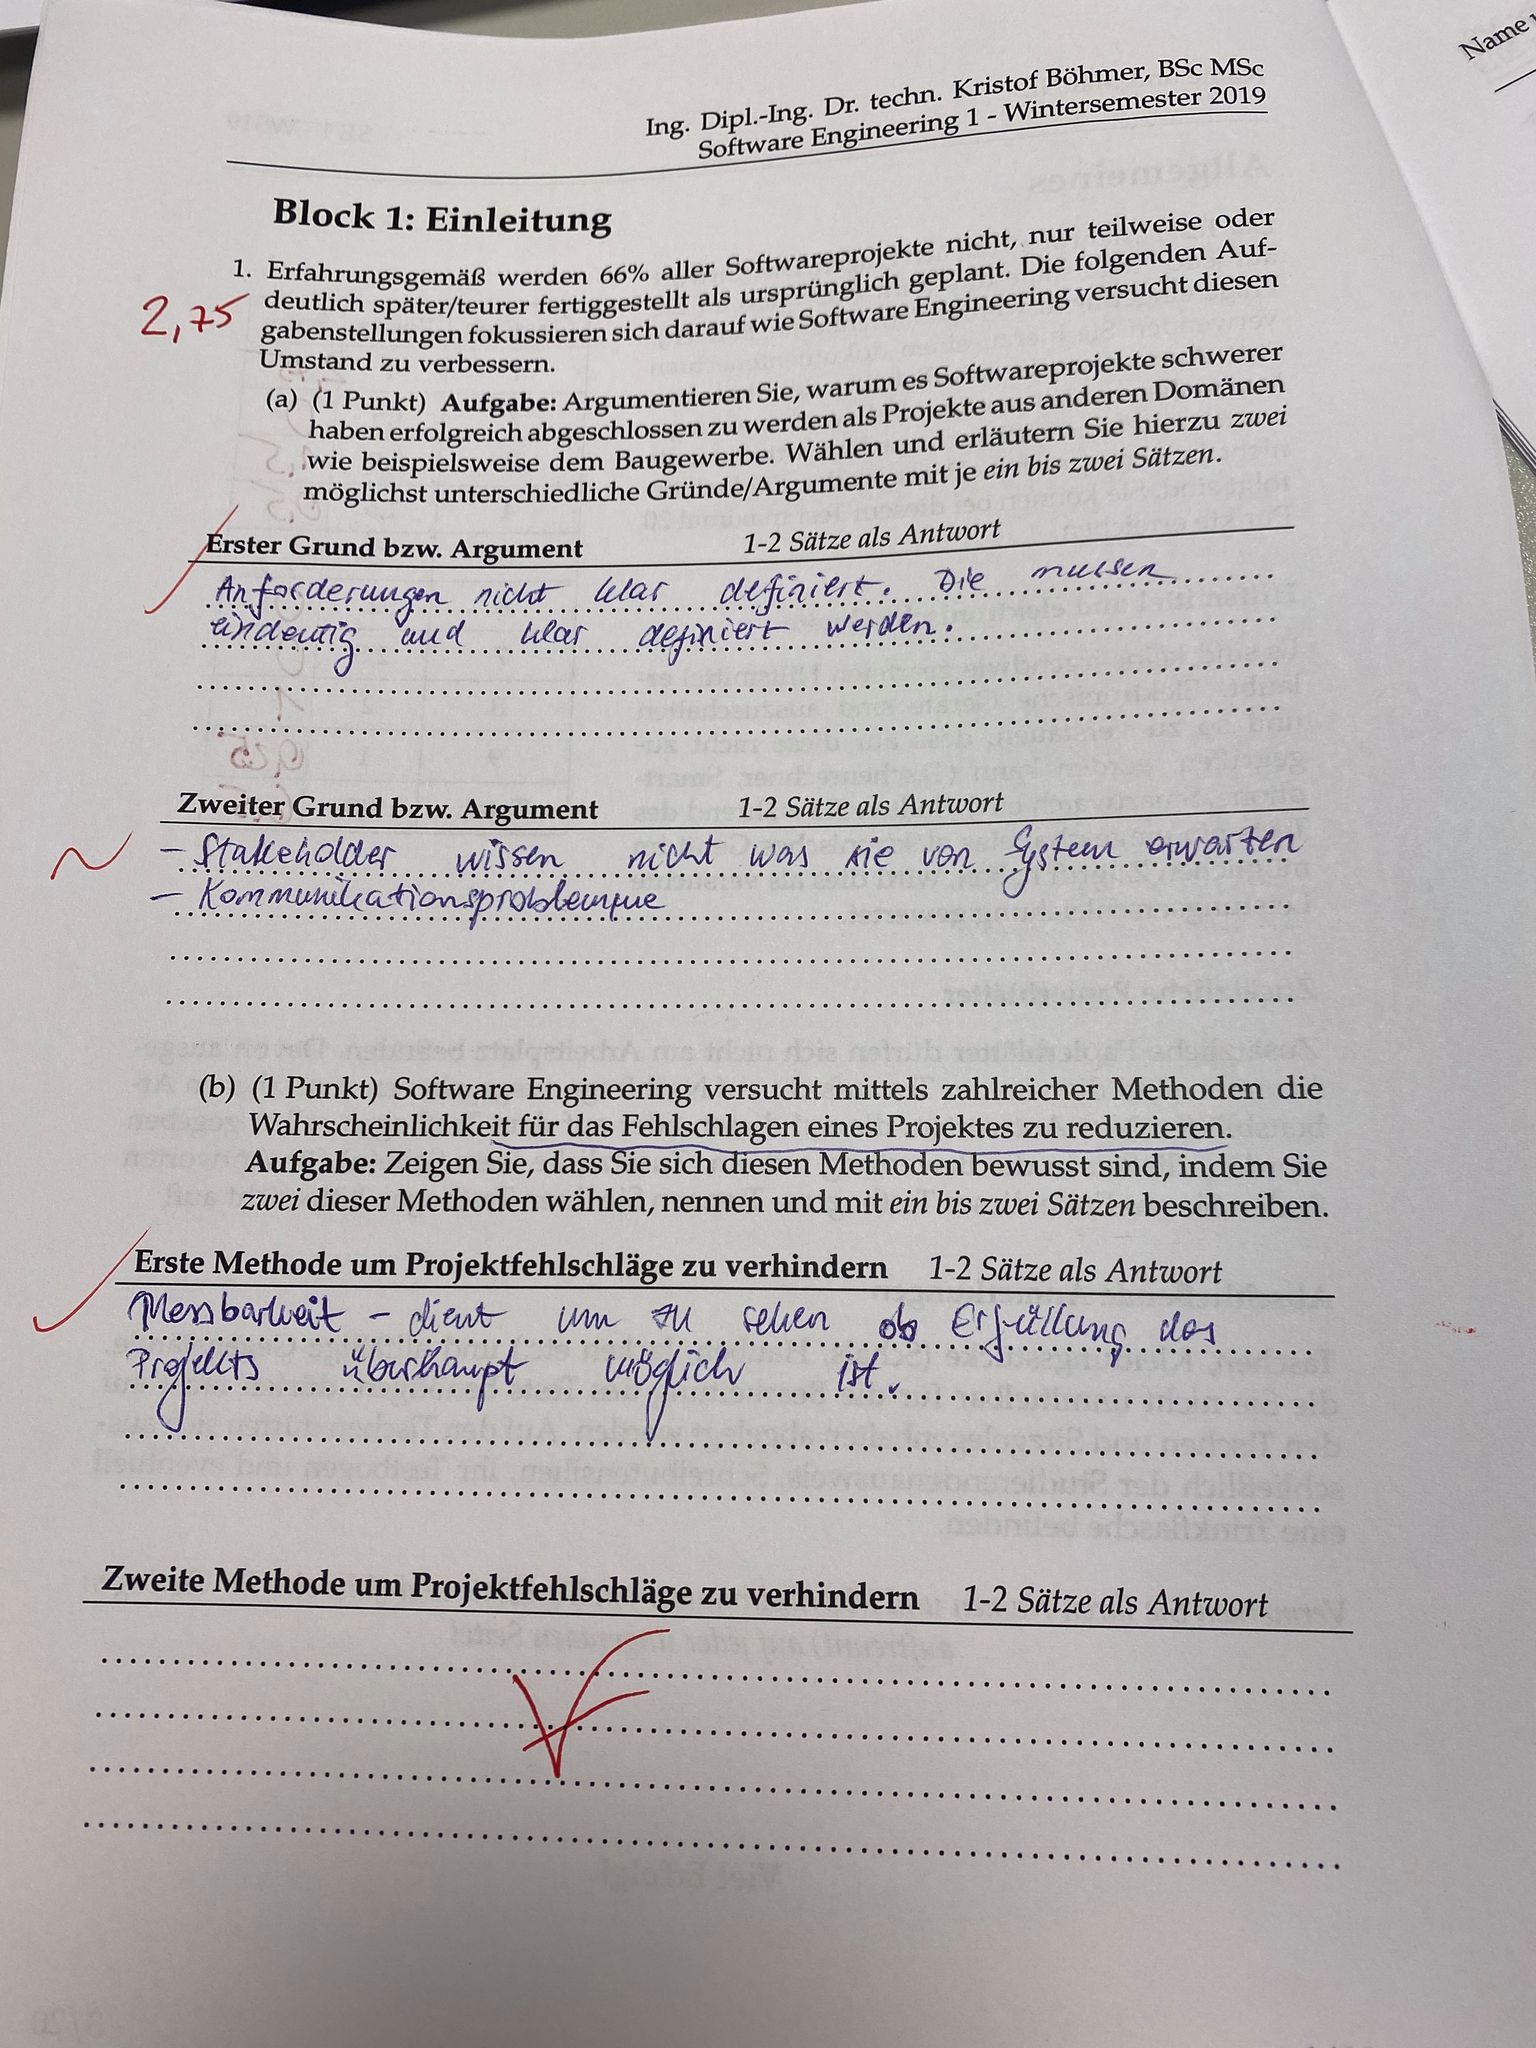 Name
Ing. Dipl.-Ing. Dr. techn. Kristof Böhmer, BSc MSc
Software Engineering 1 - Wintersemester 2019
Block 1: Einleitung
1. Erfahrungsgemäß werden 66% aller Softwareprojekte nicht, nur teilweise oder
deutlich später/teurer fertiggestellt als ursprünglich geplant. Die folgenden Auf-
2,75
gabenstellungen fokussieren sich darauf wie Software Engineering versucht diesen
Umstand zu verbessern.
(a) (1 Punkt) Aufgabe: Argumentieren Sie, warum es Softwareprojekte schwerer
haben erfolgreich abgeschlossen zu werden als Projekte aus anderen Domänen
wie beispielsweise dem Baugewerbe. Wählen und erläutern Sie hierzu zwei
möglichst unterschiedliche Gründe/Argumente mit je ein bis zwei Sätzen.
Erster Grund bzw. Argument 1-2 Sätze als Antwort
Anforderungen nicht klar definiert. Die mussen
eindeutig und klar definiert werden.
Zweiter Grund bzw. Argument 1-2 Sätze als Antwort
- Stakeholder wissen nicht was sie von System erwarten
- Kommunikationsproblemme
(b) (1 Punkt) Software Engineering versucht mittels zahlreicher Methoden die
Wahrscheinlichkeit für das Fehlschlagen eines Projektes zu reduzieren.
Aufgabe: Zeigen Sie, dass Sie sich diesen Methoden bewusst sind, indem Sie
zwei dieser Methoden wählen, nennen und mit ein bis zwei Sätzen beschreiben.
Erste Methode um Projektfehlschläge zu verhindern 1-2 Sätze als Antwort
Messbarkeit - dient um zu sehen ob Erfüllung des
Projekts überhaupt möglich ist.
Zweite Methode um Projektfehlschläge zu verhindern 1-2 Sätze als Antwort